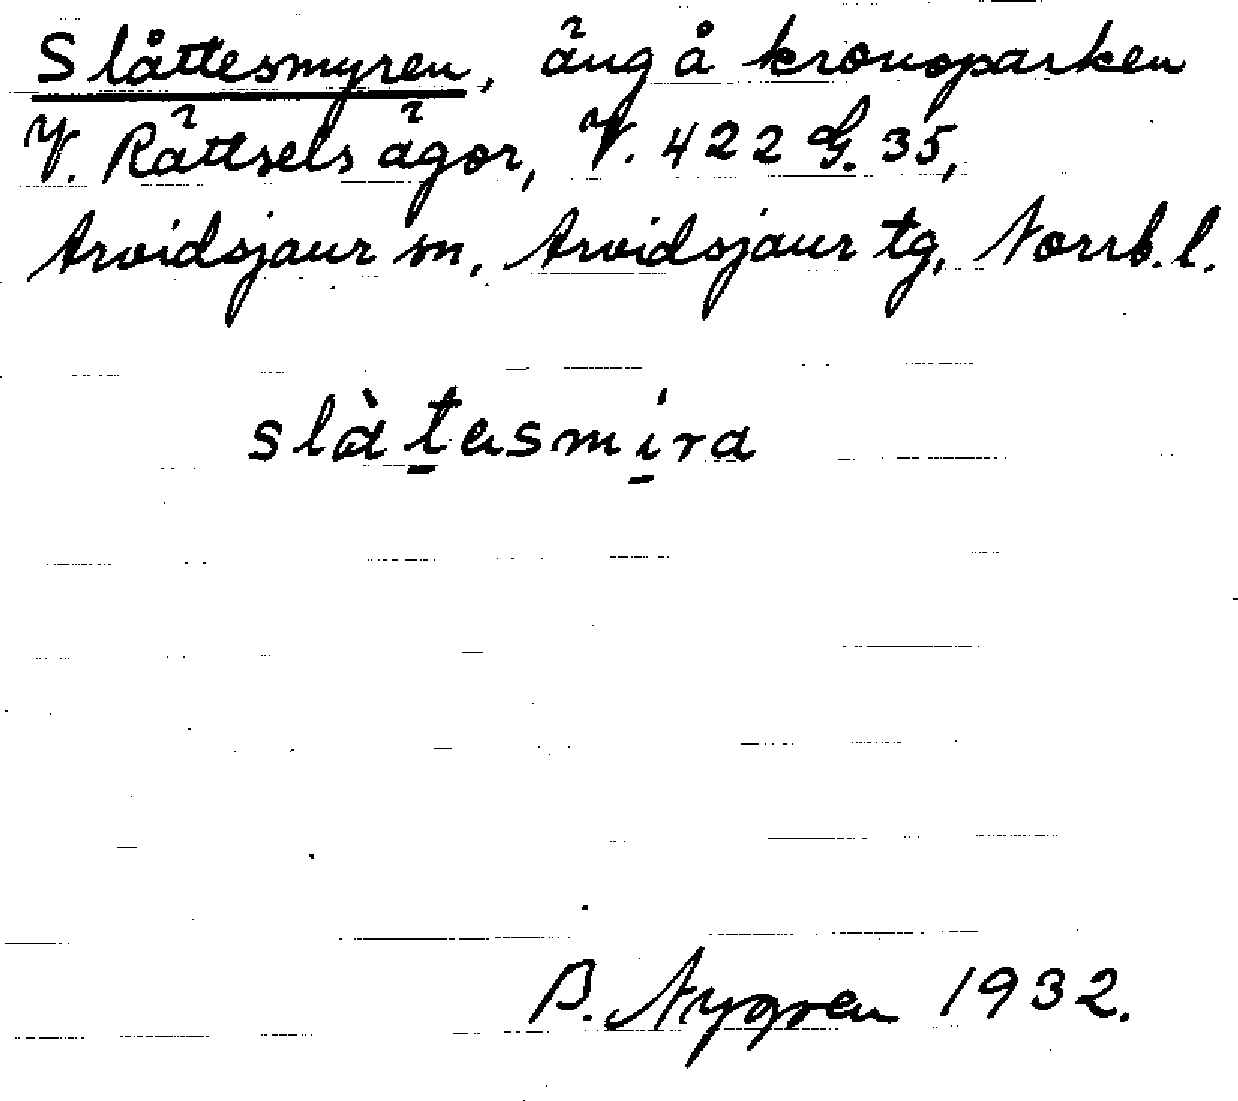 Slåttesmyren, äng å kronoparken
V. Rättsels ägor, V. 422 G. 35,
Arvidsjaur sn, Arvidsjaur tg, Norrb. l.
slàtesmira
B. Nygren 1932.